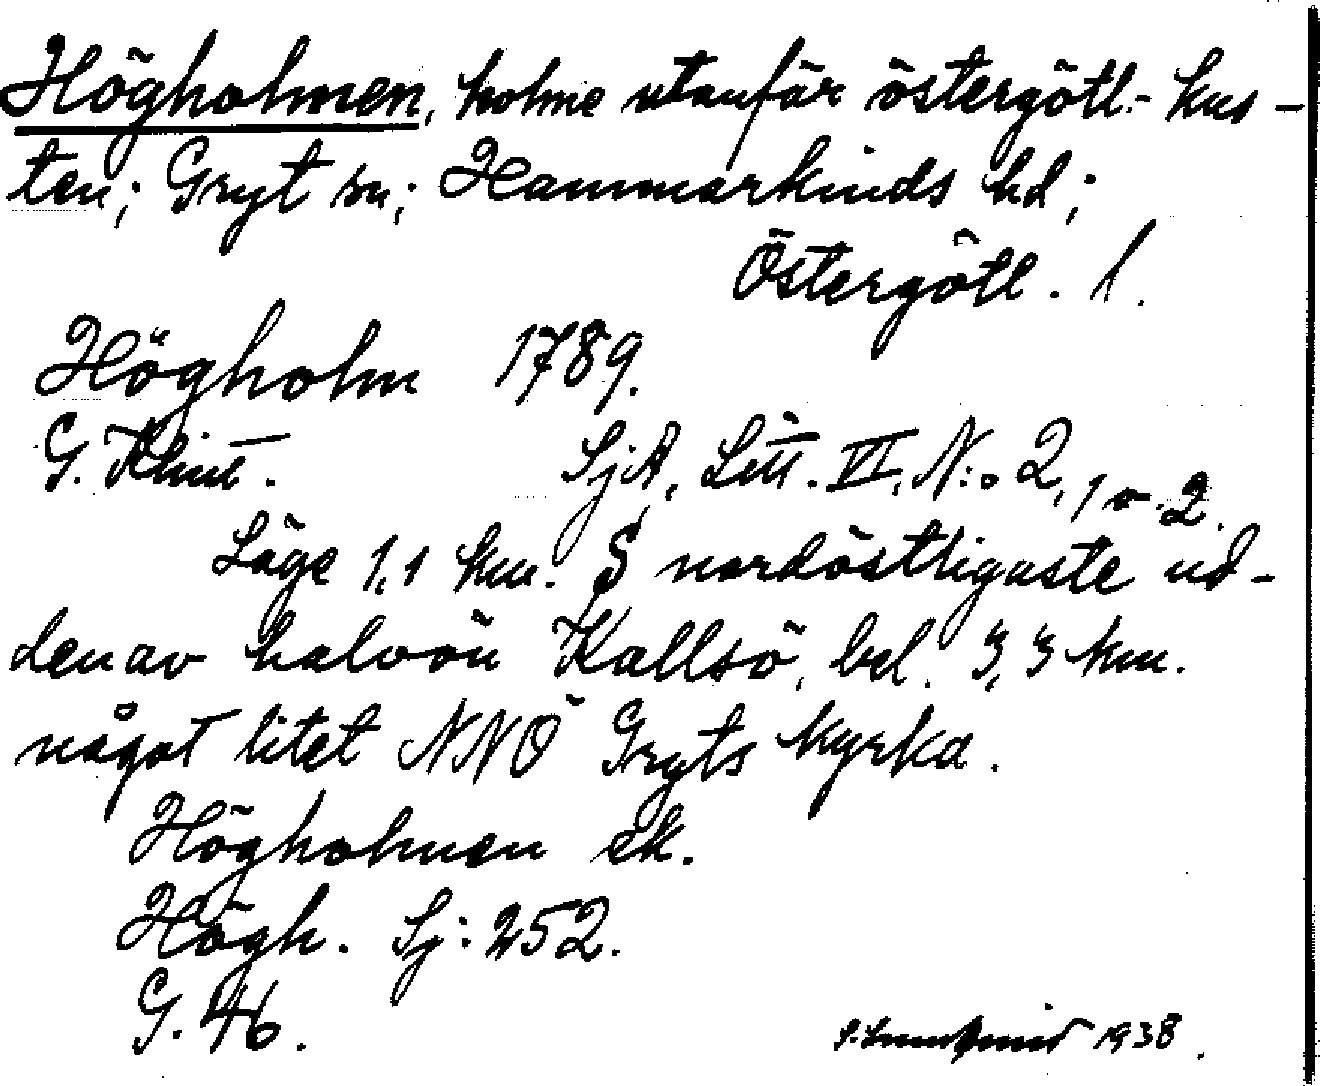 Högholmen, holme utanför östergötl.- kus-
ten; Gryt sn; Hammarkinds hd;
Östergötl. l.
Högholm 1789.
G. Klint. SjA, Litt. VI, N:o 2, 1 o. 2.
Läge 1,1 km. S nordöstligaste ud-
den av halvön Kallsö, bel. 3,3 km.
något litet NNÖ Gryts kyrka.
Högholmen ek.
Högh. Sj: 252.
G. 46.
1938.